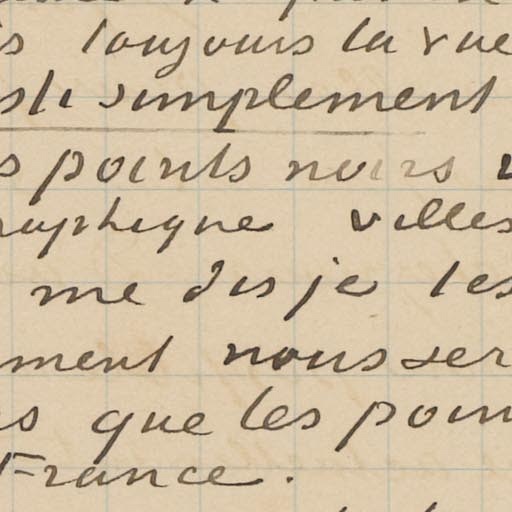 s toujours la vue
simplement
s points noirs
raphique villes
me dis je les
ment nous ser
s que les poin
France.